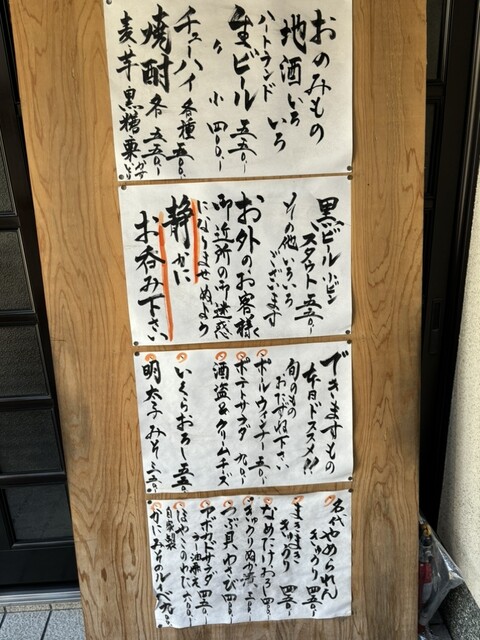 おのみもの
地酒いろいろ
ハートランド
生ビール 五五〇、
〃 小 四〇〇、
チューハイ 各種 五〇〇、
焼酎 各 五五〇、
麦・芋・黒糖・栗
黒ビール 小ビン
スタウト 五五〇、
その他いろいろ
ございます
お外のお客様
御近所の御迷惑
になりませぬよう
静かに
お呑み下さい
できますもの
本日ドススメ!!
旬のもの
おたずね下さい
ポールウィンナー 五〇、
ポテトサラダ 九〇、
酒盗&クリームチーズ
いくらおろし 五五〇
明太子みそ 三五〇
名代 やめられん
きゅうり 四五〇
まきまき
きゅうり 四五〇
なめたけおろし 四〇〇
きゅうりぬか漬
つぶ貝わさび 四〇〇
アボカドサラダ 四五〇
ラー油
ほやこのわた 六〇〇
自家製
かにみその